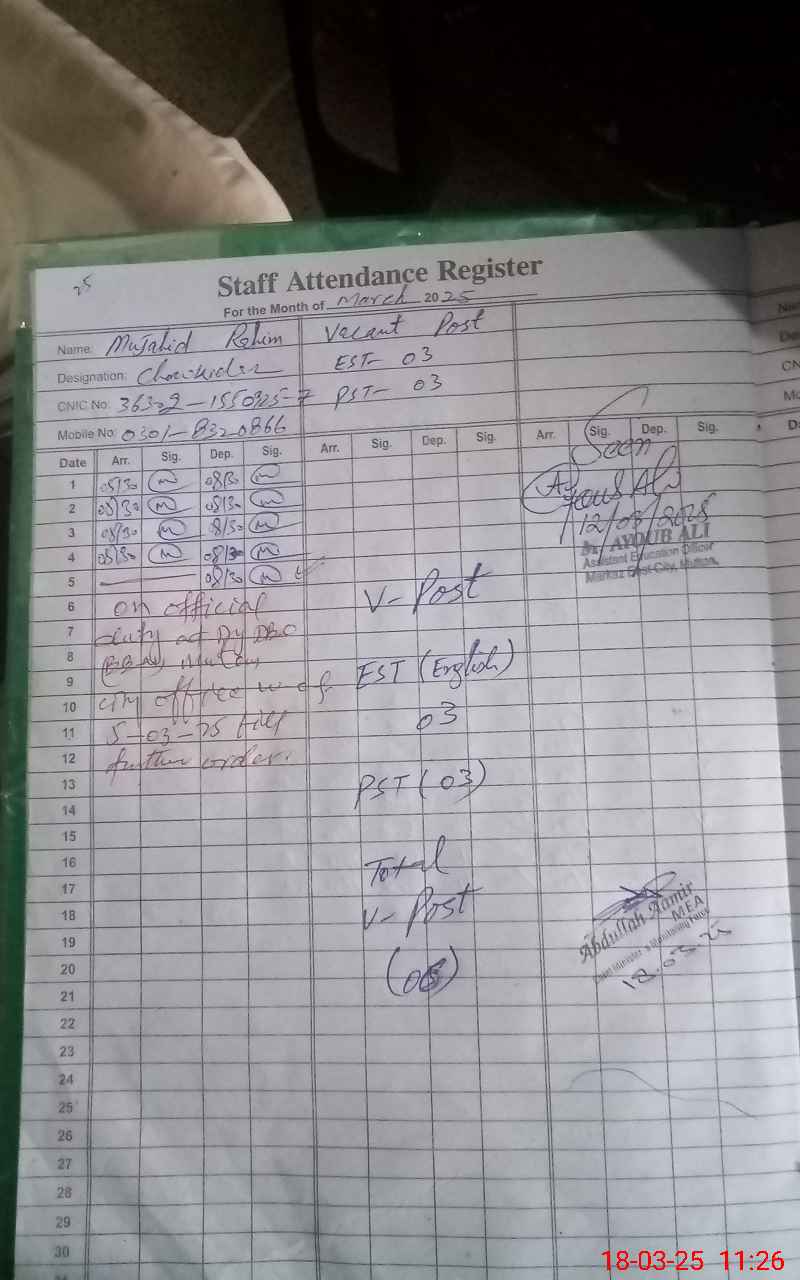 25
Staff Attendance Register
For the Month of March 2025
Name: Mujahid Rahim
Vacant Post
Designation: Chowkidar
EST- 03
CNIC No: 36302-1550325-7
PST- 03
Mobile No: 0301-8320866
Date Arr. Sig. Dep. Sig. Arr. Sig. Dep. Sig. Arr. Sig. Dep. Sig.
Seen
1 08/30 08/30
2 08/30 08/30
Ayoub Ali
3 08/30 08/30
12/03/2025
4 08/30 08/30
Dr. AYOUB ALI
Assistant Education Officer
Markaz East City, Multan
5 08/30
V-Post
6 on official
7 duty at Dy DEO
8 Multan
9 city office w e f
EST (English)
10
11 5-03-25 till
03
12 further order.
13
PST (03)
14
15
16
Total
17
18
V-Post
Abdullah Aamir
MEA
Chief Minister's Monitoring Force
18.03.25
19
20
(06)
21
22
23
24
25
26
27
28
29
30
31
18-03-25 11:26